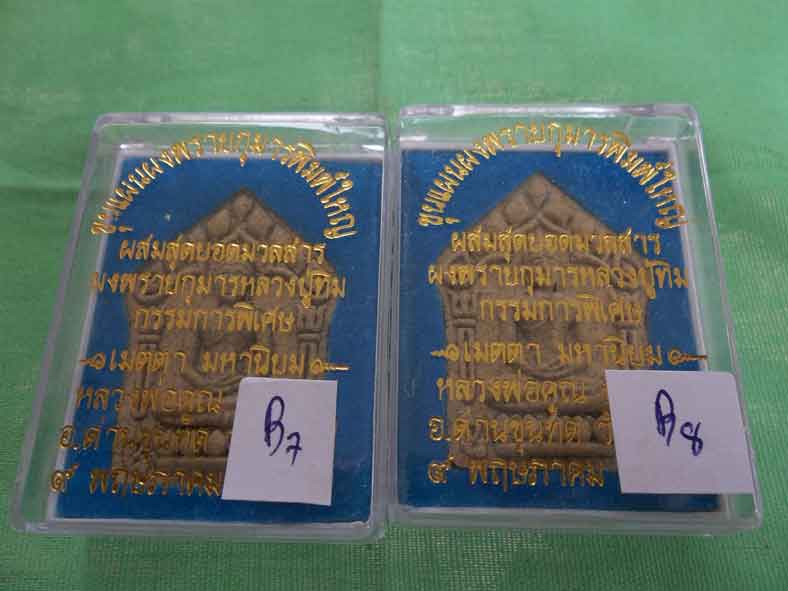 ขุนแผนผงพรายกุมารพิมพ์ใหญ่
ผสมสุดยอดมวลสาร
ผงพรายกุมารหลวงปู่ทิม
กรรมการพิเศษ
เมตตา มหานิยม
หลวงพ่อคูณ
อ.ด่านขุนทด
๙ พฤษภาคม
B7
ขุนแผนผงพรายกุมารพิมพ์ใหญ่
ผสมสุดยอดมวลสาร
ผงพรายกุมารหลวงปู่ทิม
กรรมการพิเศษ
เมตตา มหานิยม
หลวงพ่อคูณ
อ.ด่านขุนทด
๙ พฤษภาคม
B8